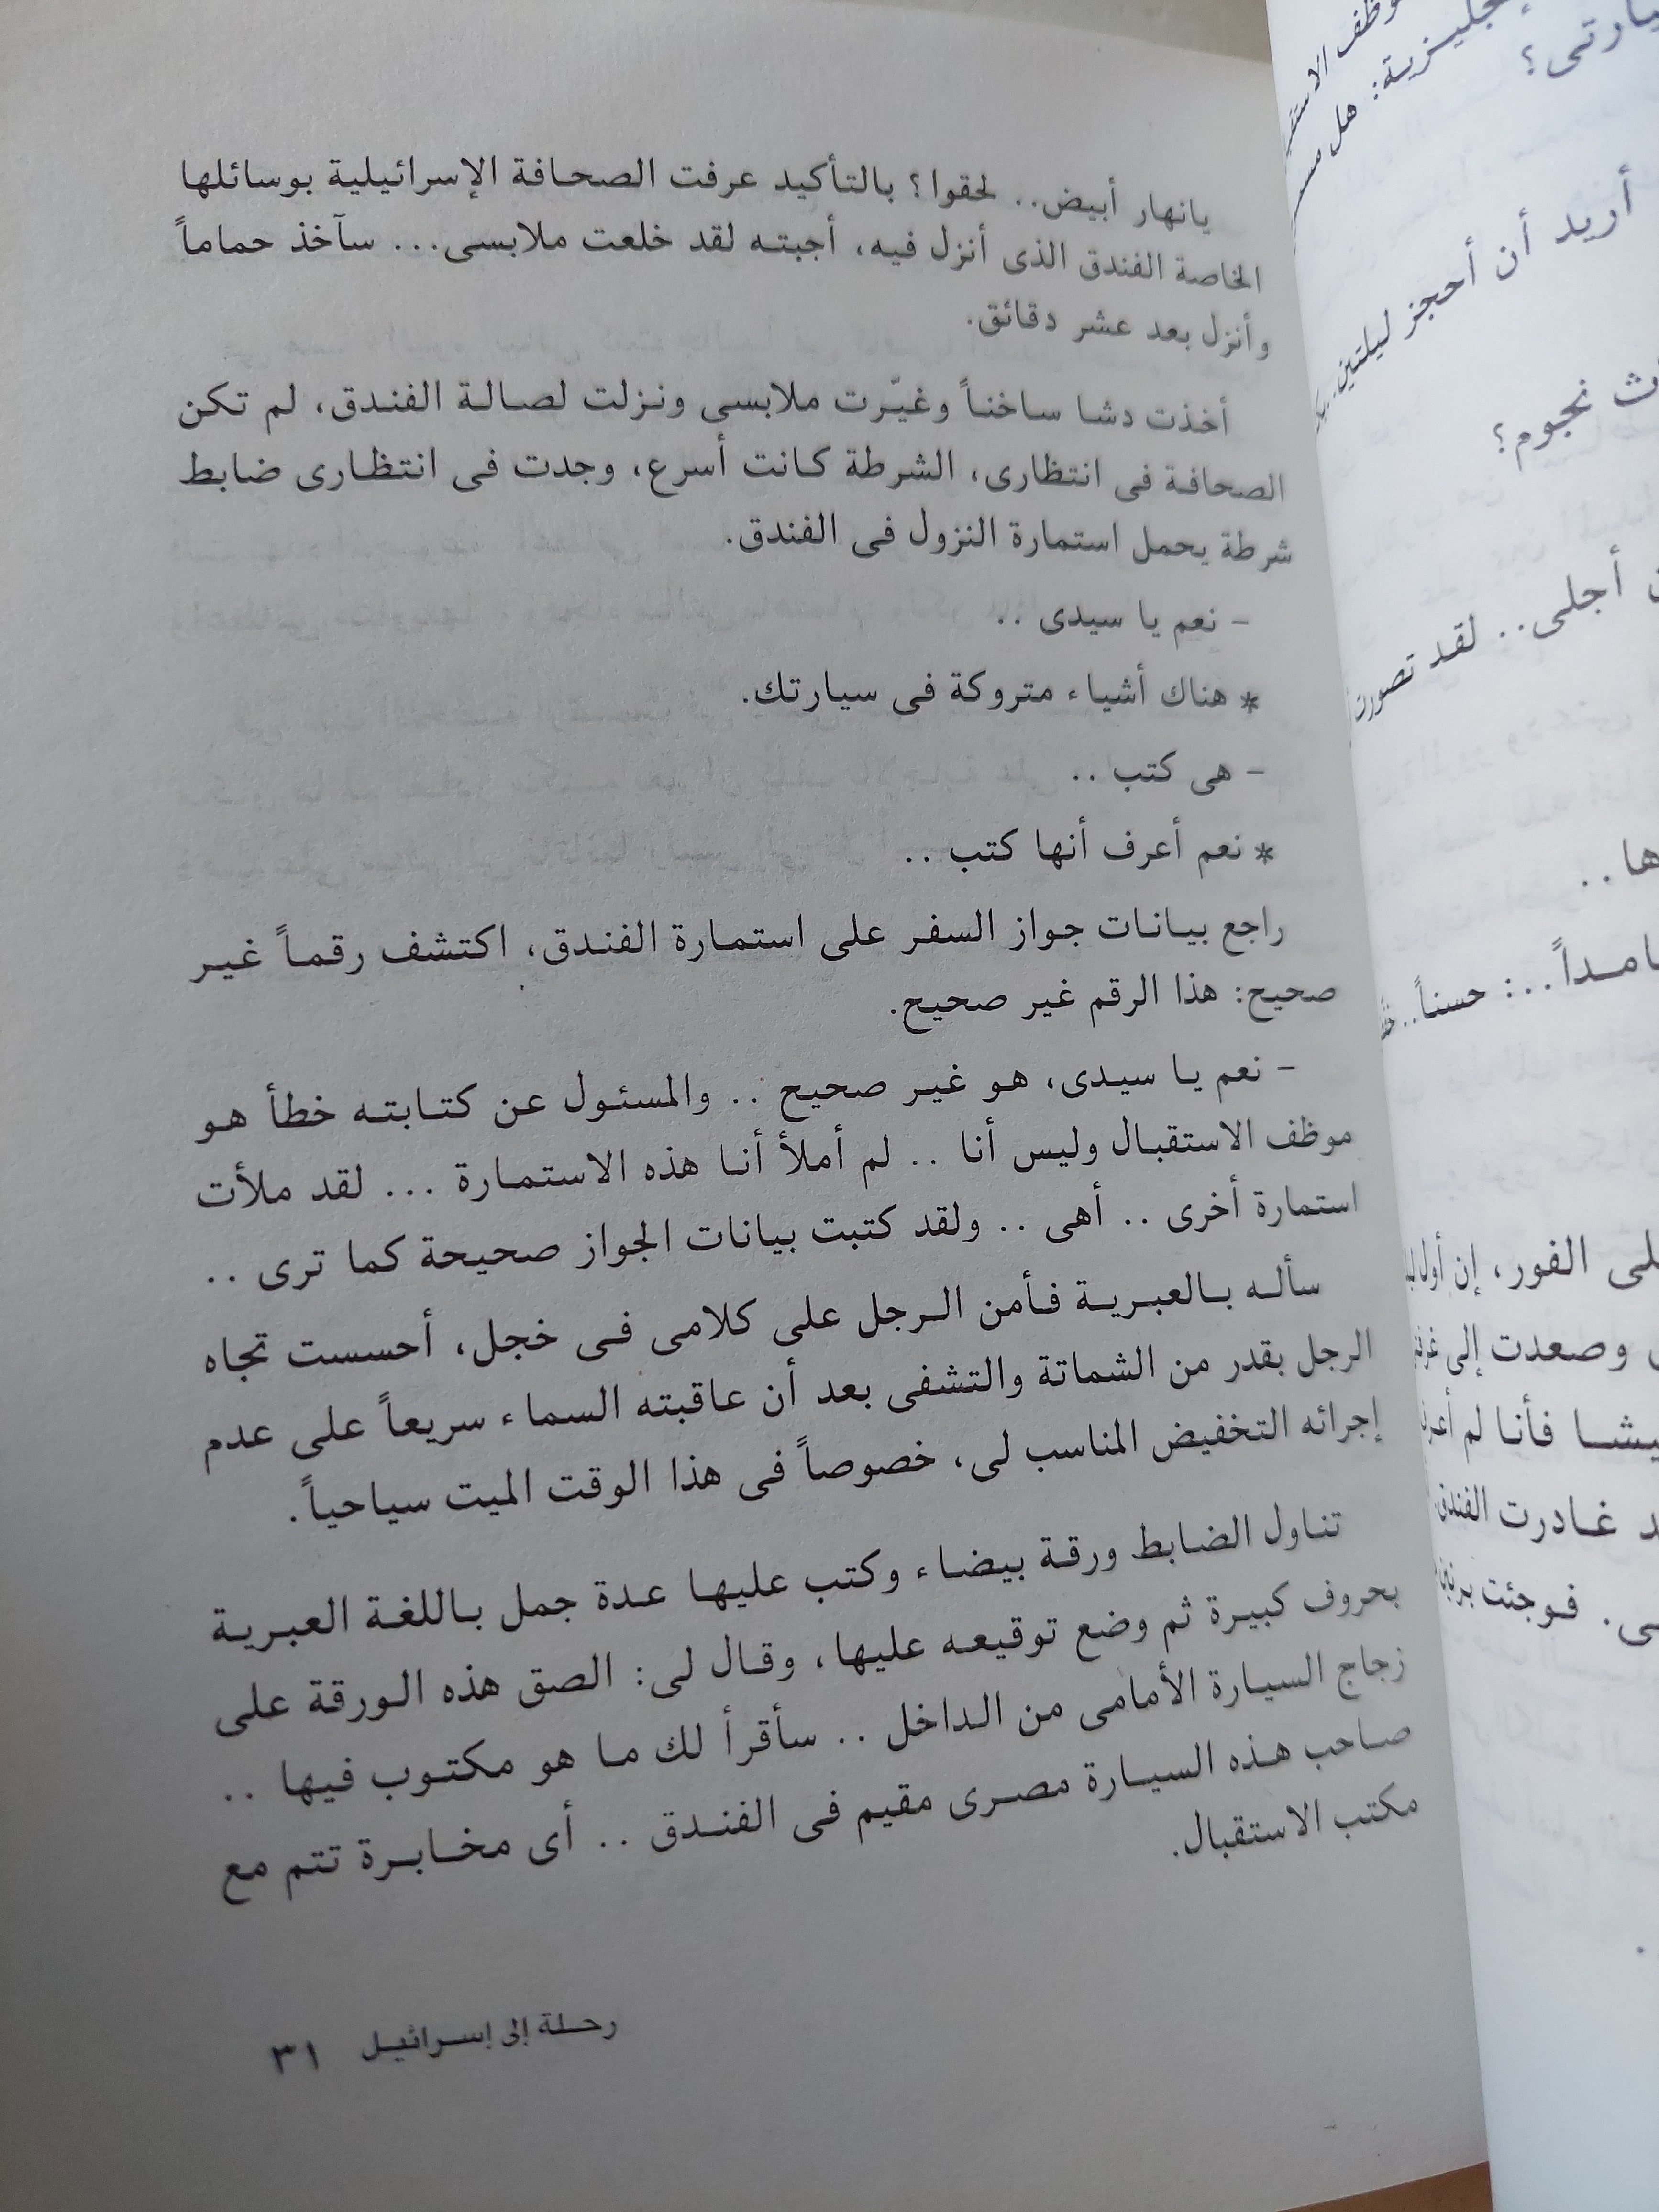 يانهار أبيض.. لحقوا؟ بالتأكيد عرفت الصحافة الإسرائيلية بوسائلها
الخاصة الفندق الذى أنزل فيه، أجبته لقد خلعت ملابسى... سآخذ حماماً
وأنزل بعد عشر دقائق.
أخذت دشا ساخناً وغيّرت ملابسى ونزلت لصالة الفندق، لم تكن
الصحافة فى انتظارى، الشرطة كانت أسرع، وجدت فى انتظارى ضابط
شرطة يحمل استمارة النزول فى الفندق.
- نعم يا سيدى ..
* هناك أشياء متروكة فى سيارتك.
- هى كتب ..
* نعم أعرف أنها كتب ..
راجع بيانات جواز السفر على استمارة الفندق، اكتشف رقماً غير
صحيح: هذا الرقم غير صحيح.
- نعم يا سيدى، هو غير صحيح .. والمسئول عن كتابته خطأ هو
موظف الاستقبال وليس أنا .. لم أملأ أنا هذه الاستمارة ... لقد ملأت
استمارة أخرى .. أهى .. ولقد كتبت بيانات الجواز صحيحة كما ترى ..
سأله بالعبرية فأمن الرجل على كلامى فى خجل، أحسست تجاه
الرجل بقدر من الشماتة والتشفى بعد أن عاقبته السماء سريعاً على عدم
إجرائه التخفيض المناسب لى، خصوصاً فى هذا الوقت الميت سياحياً.
تناول الضابط ورقة بيضاء وكتب عليها عدة جمل باللغة العبرية
بحروف كبيرة ثم وضع توقيعه عليها، وقال لى: الصق هذه الورقة على
زجاج السيارة الأمامى من الداخل .. سأقرأ لك ما هو مكتوب فيها ..
صاحب هذه السيارة مصرى مقيم فى الفندق .. أى مخابرة تتم مع
مكتب الاستقبال.
رحلة إلى إسرائيل ٣١
هل
أريد أن أحجز ليلتين..
نجوم؟
أجلى.. لقد تصورت
حسناً..
الفور، إن أول
وصعدت إلى
فأنا لم
غادرت الفندق
فوجئت